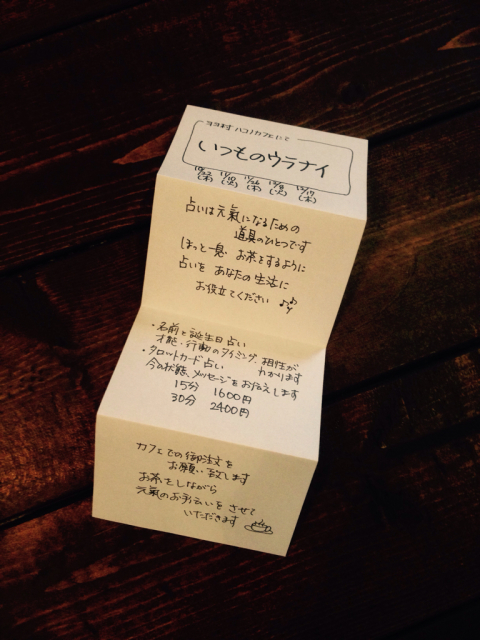 ヨヨ村 ハコノカフェにて
いつものウラナイ
10/22 11/10 11/26 12/8 12/17
(木) (火) (木) (火) (木)
占いは元氣になるための
道具のひとつです
ほっと一息 お茶をするように
占いを あなたの生活に
お役立てください♪
・名前と誕生日占い
才能・行動のタイミング、相性が
わかります
・タロットカード占い
今の状態、メッセージをお伝えします
15分 1600円
30分 2400円
カフェでの御注文を
お願い致します
お茶をしながら
元氣のお手伝いを させて
いただきます